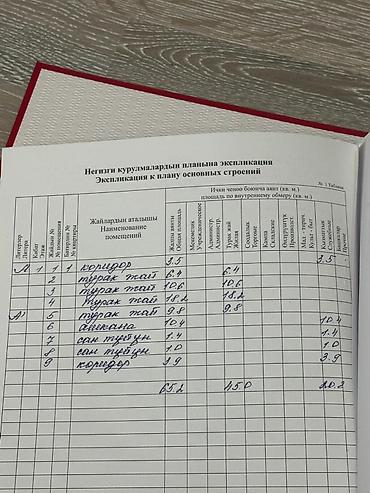 Негизги курулмалардын планына экспликация
Экспликация к плану основных строений
№ 1 Таблица
Ички ченөө боюнча аянт (кв. м.)
площадь по внутреннему обмеру (кв. м.)
Литерлер Литера
Кабат Этаж
Жайдын № № помещения
Батирдин № № квартиры
Жайлардын аталышы
Наименование
помещений
Жалпы аянты Общая площадь
Мекемелик Учрежденческие
Администр. Администр.
Турак жай Жилая
Соодалык Торговые
Кампа Складские
Өндүрүш Производст
Мад. - тарых Культ - быт
Кызматтык Служебные
Башкалар Прочие
А 1 1 1 коридор 3.5 3.5
2 турак жай 6.4 6.4
3 турак жай 10.6 10.6
4 турак жай 18.2 18.2
А¹ 5 турак жай 9.8 9.8
6 ашкана 10.4 10.4
7 сан түйүн 1.4 1.4
8 сан түйүн 1.0 1.0
9 коридор 3.9 3.9
65.2 45.0 20.2